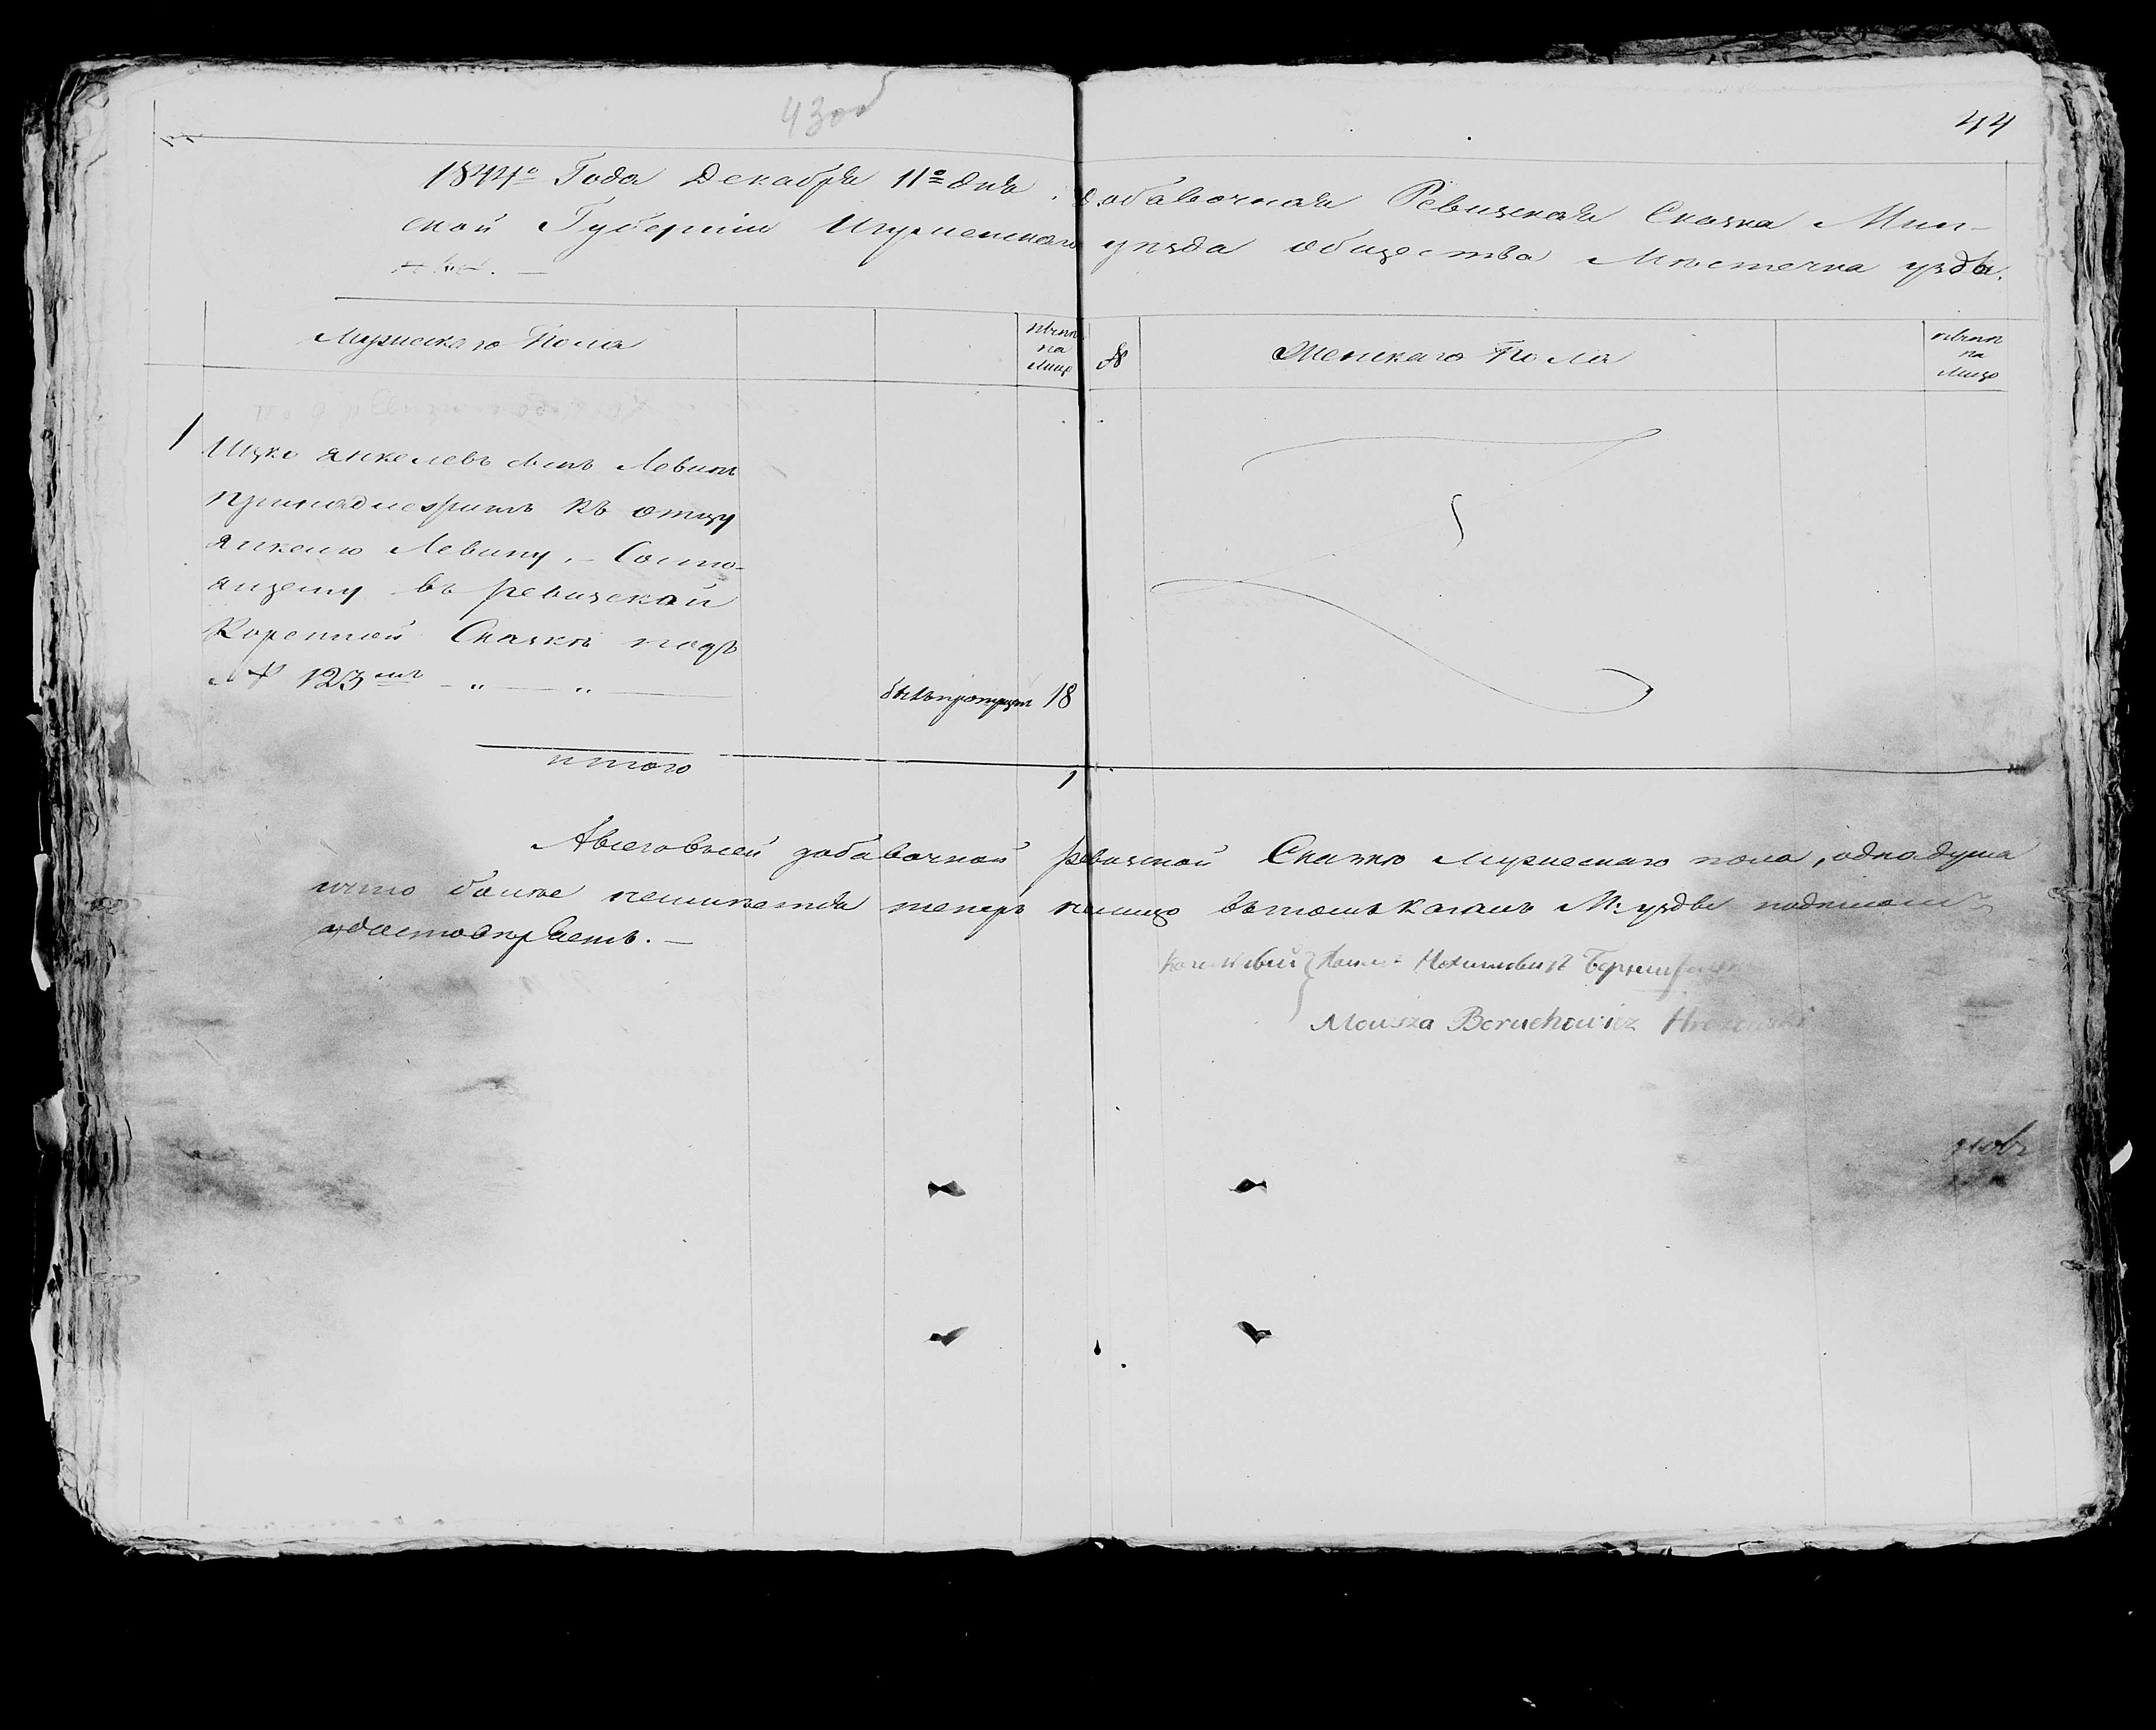 43об
44
1844го Года Декабря 11го дня добавочная Ревизская Сказка Мин-
ской Губерніи Игуменскаго уезда общества Местечка узды.
Мужескаго Пола
ныне на лицо
№
Женскаго Пола
ныне на лицо
1
Ицко янкелевъ сынъ Левин
принадлежитъ къ отцу
янкелю Левину, – Состо-
ящему въ ревизской
Коренной Сказке подъ
№ 123мъ – „ — „ —
былъ пропущен 18
итого 1
Авсеговсей добавочной ревизской Сказке мужескаго пола, однадуша
что более неимеется теперь налицо втомъ Кагале М: узде
удостоверяемъ. —
Mowsza Beruchowicz